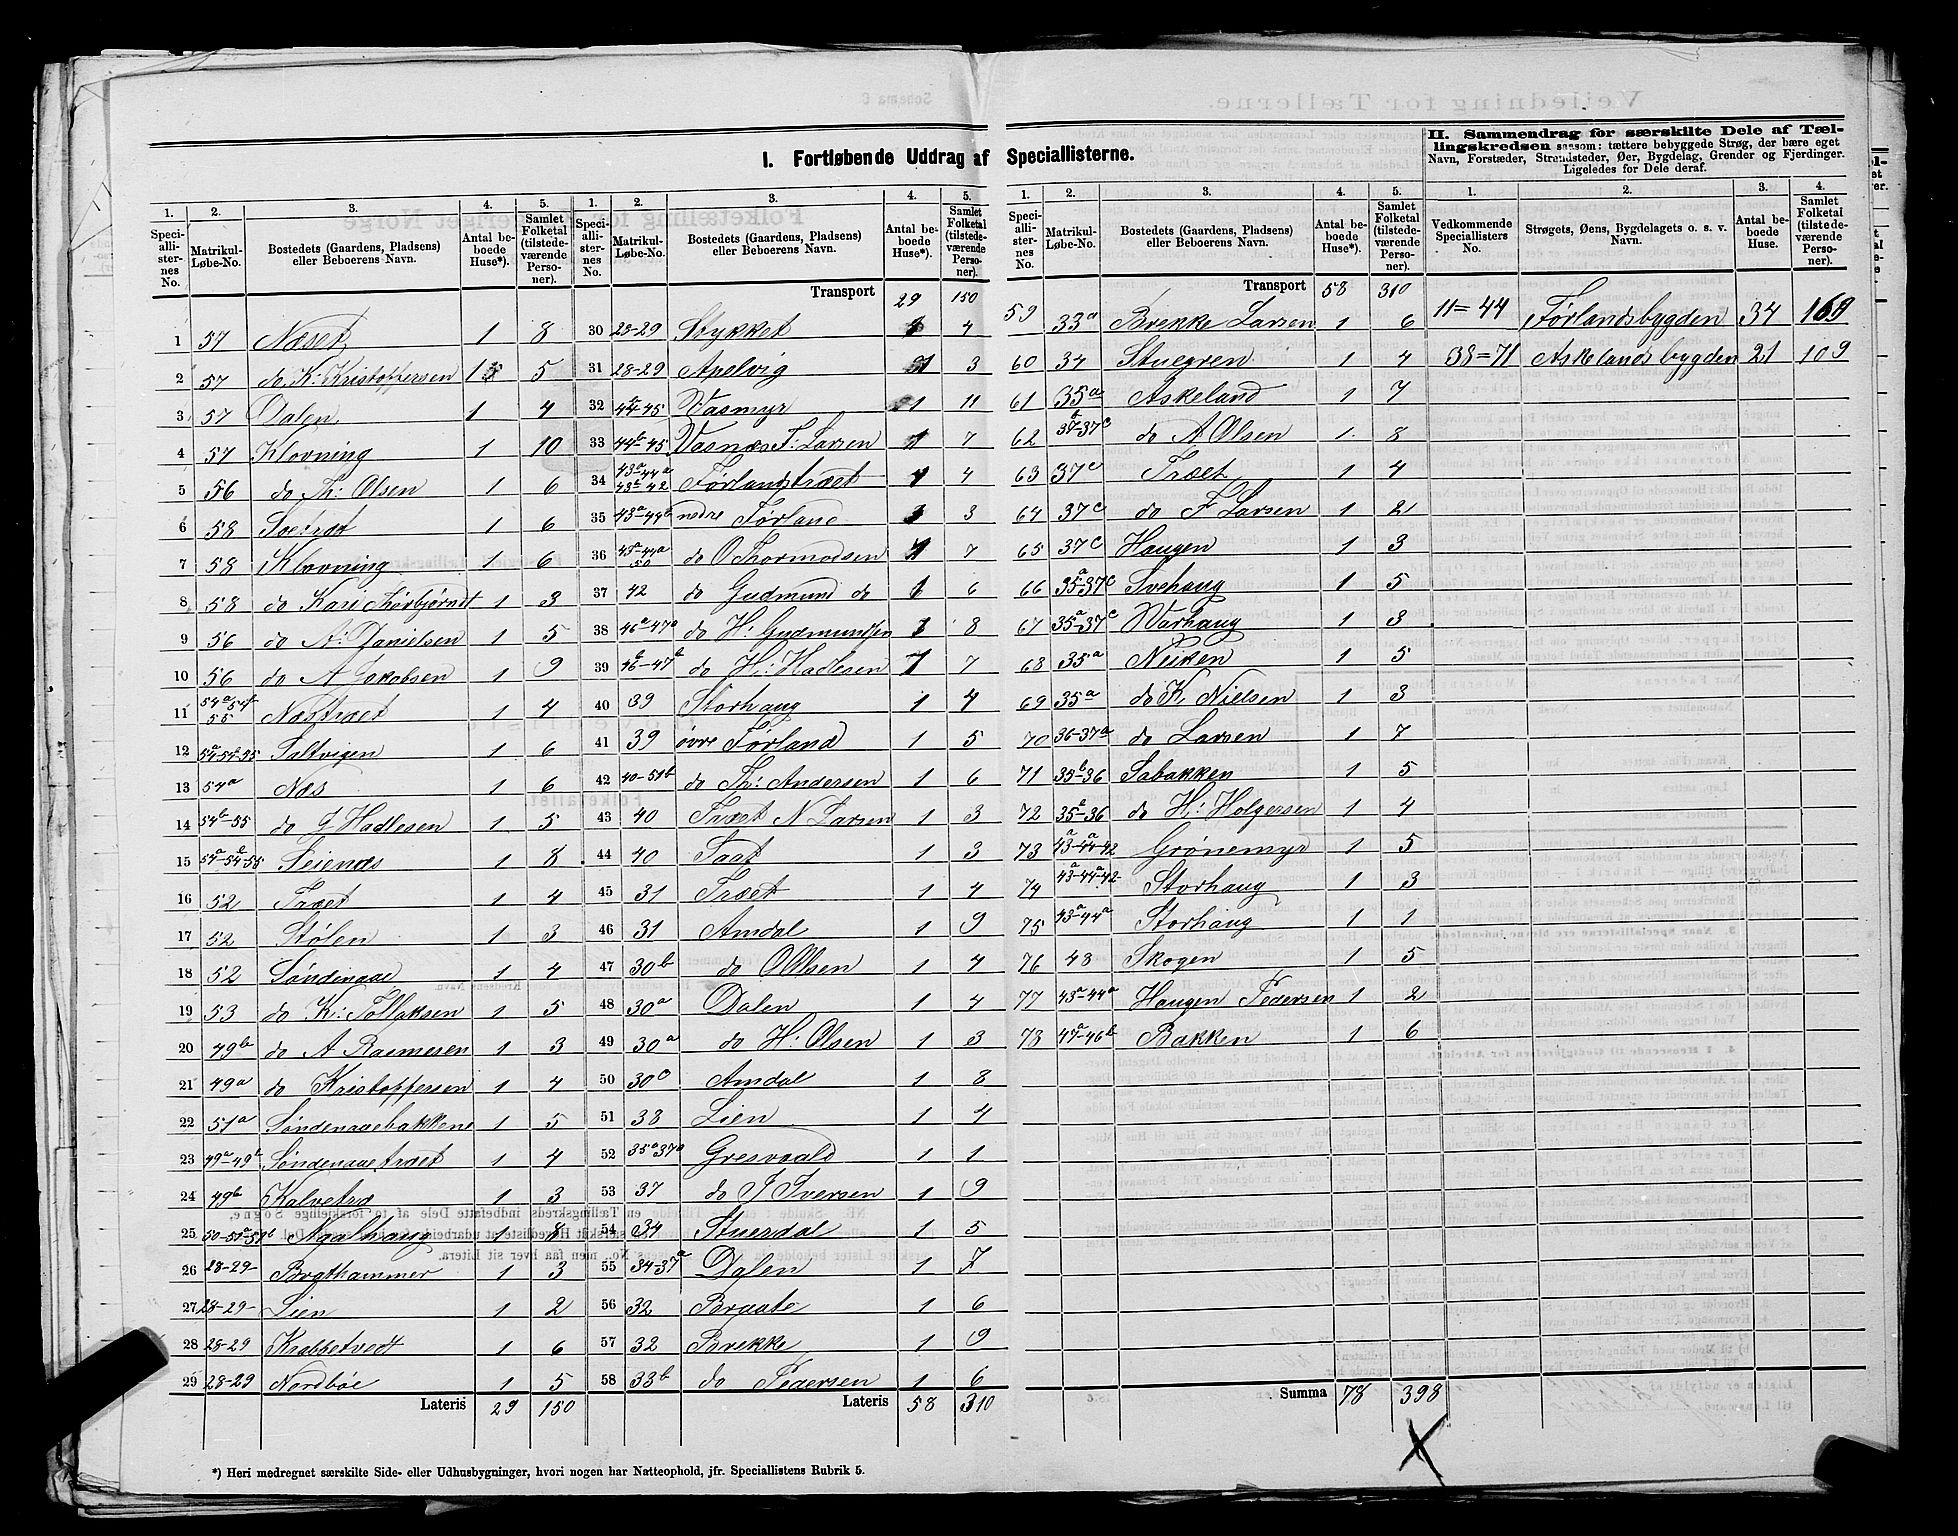 I. Fortløbende Uddrag af Speciallisterne.
II. Sammendrag for særskilte Dele af Tællingskredsen saasom: tættere bebyggede Strøg, der bære eget Navn, Forstæder, Strandsteder, Øer, Bygdelag, Grender og Fjerdinger. Ligeledes for Dele deraf.
1. 2. 3. 4. 5.
Speciallisternes No. Matrikul-Løbe-No. Bostedets (Gaardens, Pladsens) eller Beboerens Navn. Antal beboede Huse*). Samlet Folketal (tilstedeværende Personer).
1 57 Næset 1 8
2 57 do K: Kristoffersen 1 5
3 57 Dalen 1 4
4 57 Klovning 1 10
5 56 do Th: Olsen 1 6
6 58 1 6
7 58 Klovning 1 6
8 58 do Kari Thorbjørndt 1 3
9 56 do A: Danielsen 1 5
10 56 do A Jakobsen 1 9
11 Næstræet 1 4
12 Saltvigen 1 6
13 54a Næs 1 6
14 54b-55 do G Hadlesen 1 5
15 Leienæs 1 8
16 52 Træet 1 4
17 52 Stølen 1 3
18 52 Søndenaae 1 4
19 53 do K: Tollaksen 1 5
20 49b do A Rasmesen 1 3
21 49a do Kristoffersen 1 4
22 51a Søndenaaebakkene 1 5
23 49a-49b Søndenaaetræet 1 4
24 49b Kalvetræ 1 3
25 50-51a-51b 1 8
26 28-29- Brathammer 1 3
27 28-29- Lien 1 2
28 28-29 Krabbetvedt 1 6
29 28-29 Nordbøe 1 5
Lateris 29 150
1. 2. 3. 4. 5.
Speciallisternes No. Matrikul-Løbe-No. Bostedets (Gaardens, Pladsens) eller Beboerens Navn. Antal beboede Huse*). Samlet Folketal (tilstedeværende Personer).
Transport 29 150
30 28-29 Stykket 1 4
31 28-29 Apelvig 1 3
32 Vasmyr 1 11
33 44b-45 Vasnæs T: Larsen 1 7
34 43a-44a 43b-42 Førlandstræet 1 4
35 43a-44b nedre Førland 3
36 43a-44a 50 do O Thormodsen 1 7
37 42 do Gudmund do 1 6
38 46a-47a do H: Gudmundsen 1 8
39 46b-47b do H: Hadlesen 1 7
40 39 Storhaug 1 4
41 39 øvre Førland 1 5
42 40-51b do Th: Andersen 1 6
43 40 Træet N Larsen 1 3
44 40 Saat 1 3
45 31 Træet 1 4
46 31 Amdal 1 9
47 30b do O Olsen 1 4
48 30a Dalen 1 4
49 30a do H: Olsen 1 3
50 30c Amdal 1 8
51 38 Lien 1 4
52 35a 37a Gresvaald 1 1
53 37 do T Iversen 1 9
54 34 Stuerdal 1 5
55 34-37a Dalen 1 7
56 32 Braate 1 6
57 32 Brekke 1 9
58 33b do Pedersen 1 6
Lateris 58 310
1. 2. 3. 4. 5.
Speciallisternes No. Matrikul-Løbe-No. Bostedets (Gaardens, Pladsens) eller Beboerens Navn. Antal beboede Huse*). Samlet Folketal (tilstedeværende Personer).
Transport 58 310
59 33a Brekke Larsen 1 6
60 34 Stuegren 1 4
61 35a Askeland 1 7
62 37b-37c do A Olsen 1 8
63 37c Træet 1 4
64 37c do T Larsen 1 2
65 37c Haugen 1 3
66 35a-37c Svehaug 1 5
67 35a-37c Varhaug 1 3
68 35a Neiken 1 5
69 35a do K. Nielsen 1 3
70 36-37a do Larsen 1 7
71 35b-36 Sabakken 1 5
72 35b-36 do H: Holgersen 1 4
73 43a-44a-42 Grønemyr 1 5
74 43a-44a-42 Storhaug 1 3
75 43a-44a Storhaug 1 1
76 48 Skogen 1 5
77 43a-44a Haugen Pedersen 1 2
78 47a-46b Bakken 1 6
Summa 78 398
1. 2. 3. 4.
Vedkommende Speciallisters No. Strøgets, Øens, Bygdelagets o. s. v. Navn. Antal beboede Huse. Samlet Folketal (tilstedeværende Personer).
11=44 Førlandsbygden 34 169
38=71 Askelandsbygden 21 109
*) Heri medregnet særskilte Side- eller Udhusbygninger, hvori nogen har Natteophold, jfr. Speciallistens Rubrik 5.